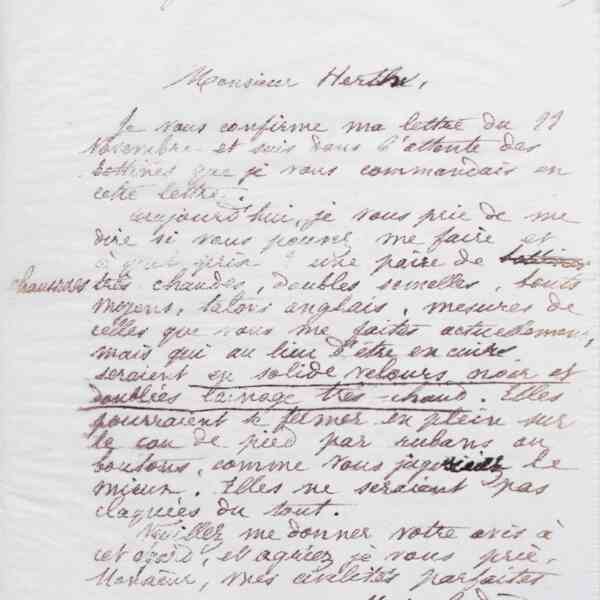 Monsieur
Je vous confirme ma lettre du
Novembre et suis dans l'attente des
bottines que je vous commandais en
cette lettre.
Aujourd'hui, je vous prie de me
dire si vous pouvez me faire et
à quel prix ? une paire de
chaussures très chaudes, doubles semelles, bouts
moyens, talons anglais, mesures de
celles que vous me faites actuellement,
mais qui au lieu d'être en cuir
seraient en solide velours noir et
doublées lainage très-chaud. Elles
pourraient se fermer en plein sur
le cou de pied par rubans ou
boutons, comme vous le
mieux. Elles ne seraient pas
claquées du tout.
Veuillez me donner votre avis à
cet égard, et agréez je vous prie,
Monsieur, mes civilités parfaites